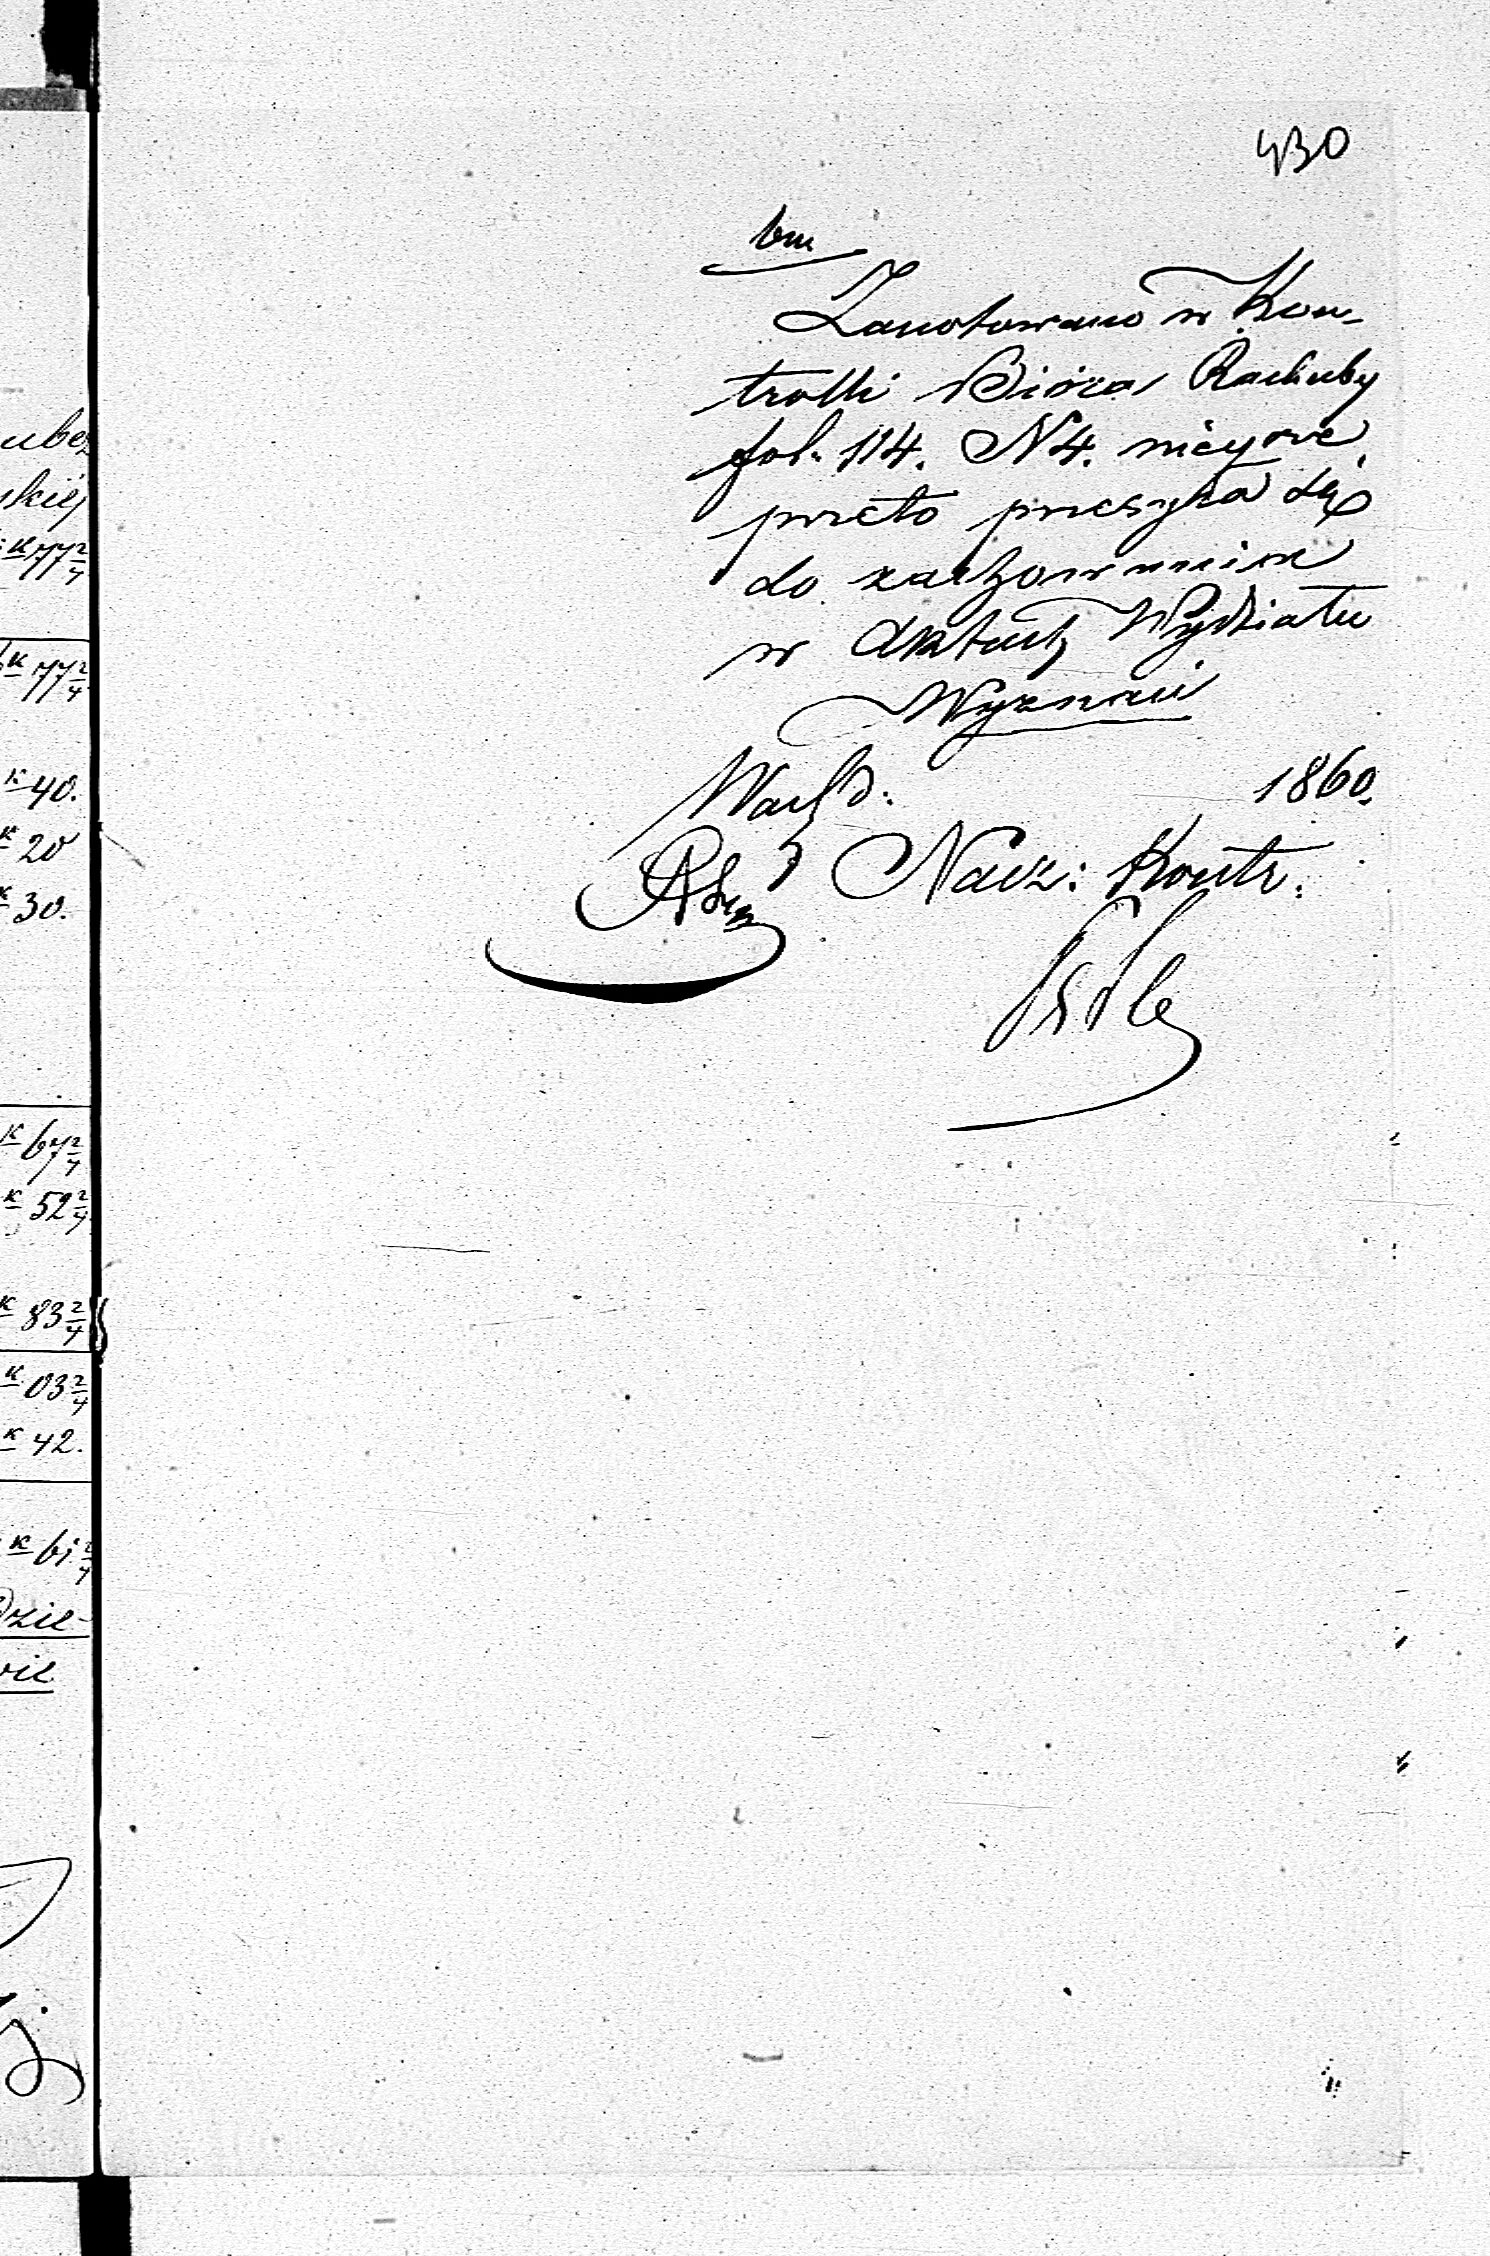 430
bm
Zanotowano w Kon-
trolli Bióra Rachuby
fol. 114. N 4.
przeto przesyła się
do zachowania
w Aktach Wydziału
Wyznań
Warsz d. 1860.
Nacz: Kontr.
ubez
skiéj
k 77 2/4
k 77 2/4
k 40.
k 20
k 30.
k 67 2/4
k 52 2/4
k 83 2/4
k 03 2/4
k 42.
k 61 2/4
Dzie-
wie